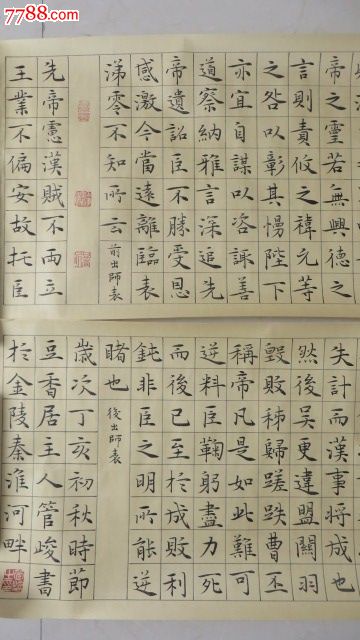 7788.com
帝之靈若無興德之
言則責攸之禕元等
之咎以彰其慢陛下
亦宜自謀以咨諏善
道察納雅言深追先
帝遺詔臣不勝受恩
感激今當遠離臨表
涕零不知所云 前出師表
先帝慮漢賊不兩立
王業不偏安故托臣
失計而漢事將成也
然後吳更違盟關羽
毀敗秭歸蹉跌曹丕
稱帝凡是如此難可
逆料臣鞠躬盡力死
而後已至於成敗利
鈍非臣之明所能逆
睹也 後出師表
歲次丁亥初秋時節
豆香居主人管峻書
於金陵秦淮河畔